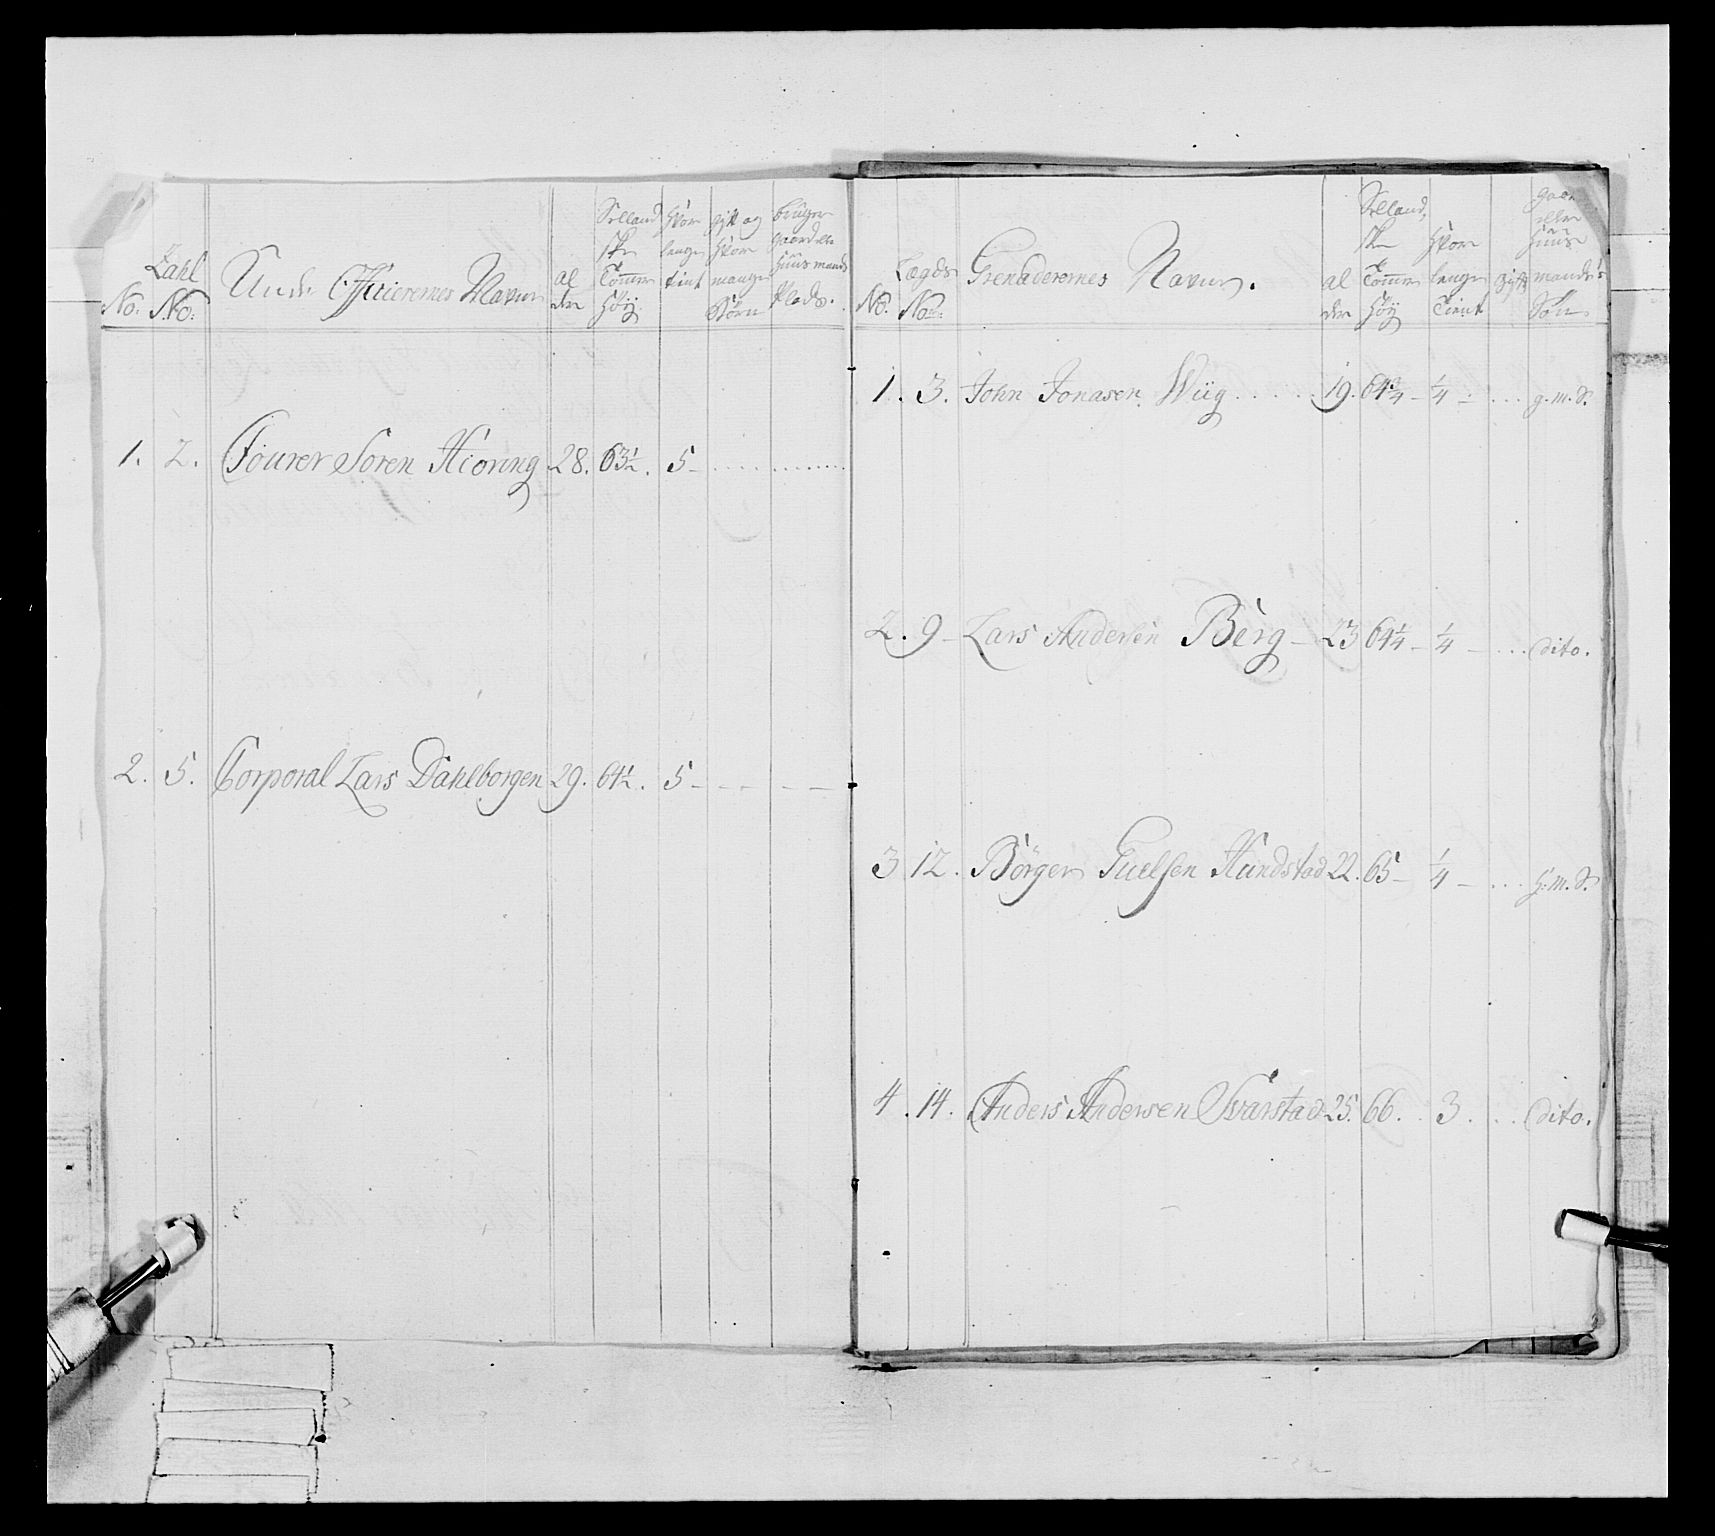 No.
Zahl
No:
Unde Officierernes Navne
al
der
Selland
ske
Tomer
höÿ
hvor
lenge
tient
gift og
hvor
mange
Börn
bruger
gaard eller
huusmands
Plads.
1. 2. Fourer Soren Hioring 28. 63½. 5-
2. 5. Corporal Lars Dahlborgen 29. 64½. 5-
No.
Lægds
No:
Grenaderernes Navne.
al
der
Selland
ske
Tomer
höÿ
hvor
lenge
Tient
gift
gaar
eller
huus
mands
Sön.
1. 3. John Jonasen Wiig 19. 64¾- ¼- g. m. S.
2. 9- Lars Andersen Berg- 23 64¼- ¼- dito.
3 12. Börger Hundstad 22. 65- ¼- h. m. S.
4. 14. Anders Andersen Svarstad 25. 66. 3. dito.